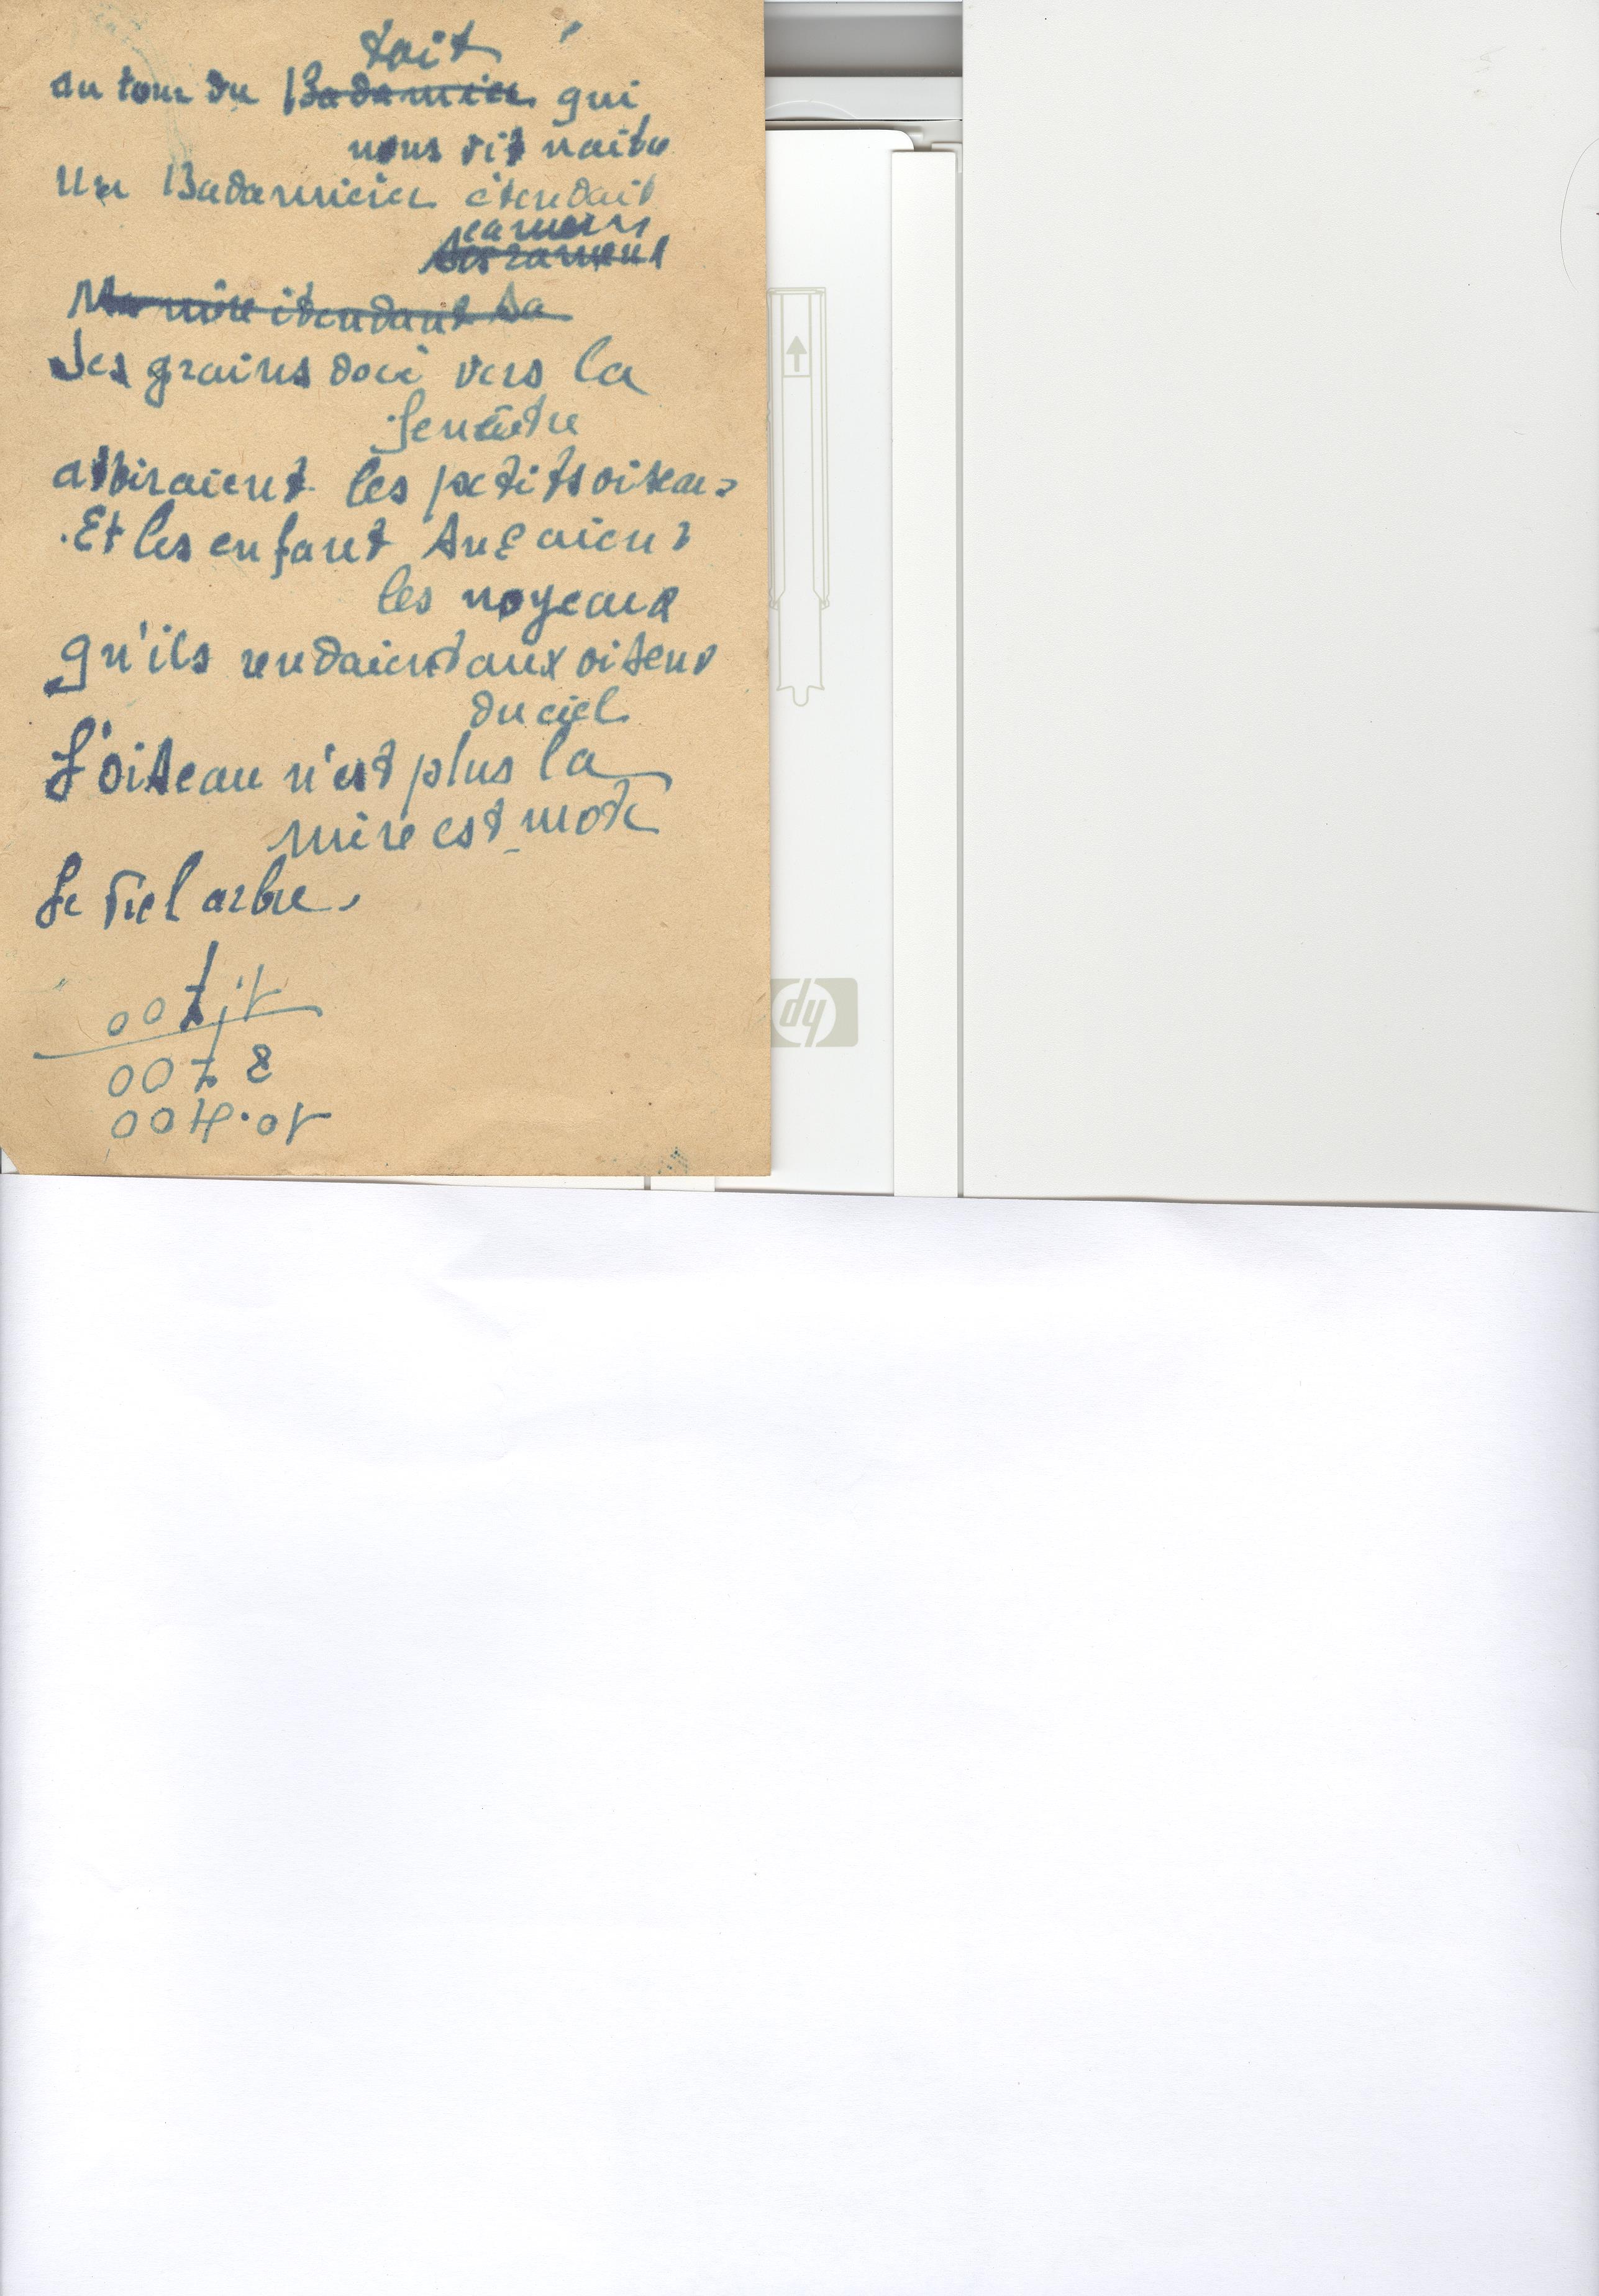 toit
au tour du Badamier qui
nous vit naitre
Un Badamier étendait
ses rameux
Ma mère étendant sa
Ses grains doré vers la
fenêtre
attiraient les petits oiseau
Et les enfant suçaient
les noyeaux
qu'ils rendaient aux oiseux
du ciel
L'oiseau n'est plus la
mère est morte
Le viel arbre.
00
00 8
00
hp